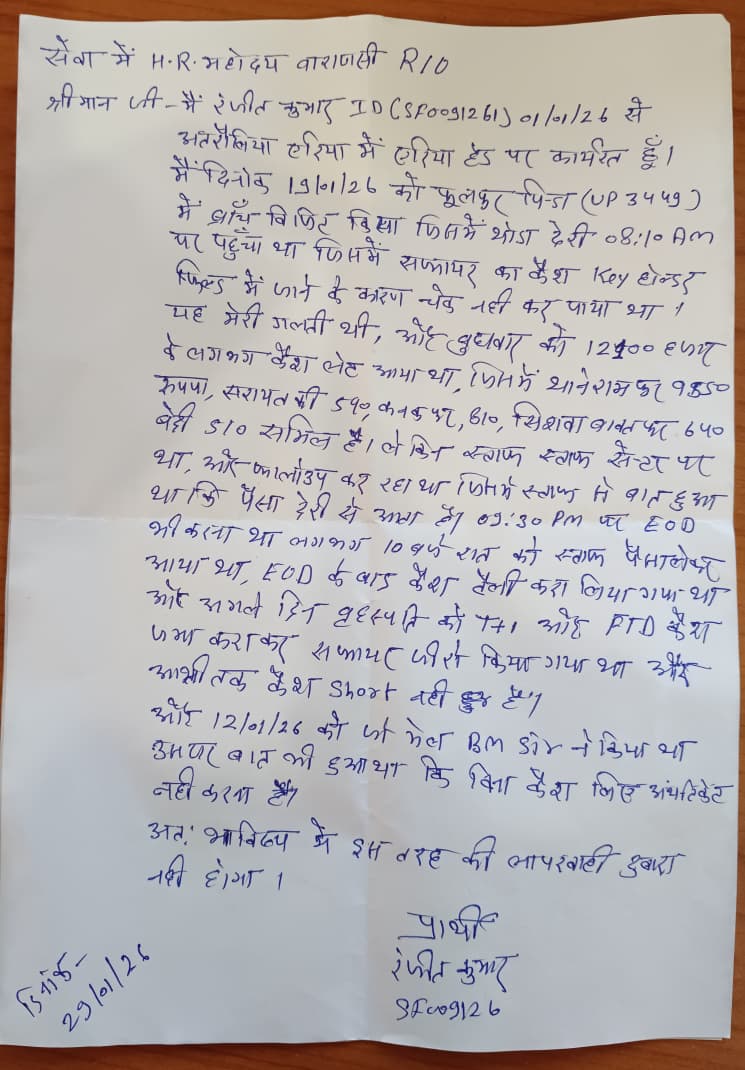 सेवा में H.R. महोदय वाराणसी R/O
श्रीमान जी - मैं रंजीत कुमार ID (SF0091261) 01/01/26 से
अतरौलिया एरिया में एरिया हेड पर कार्यरत हूँ।
मैं दिनांक 19/01/26 को फूलपुर पिन्डा (UP 3449)
में ब्राँच विजिट किया जिसमें थोडा देरी 08:10 Am
पर पहुँचा था जिसमें सफायर का कैश Key होल्डर
फिल्ड में जाने के कारण चेक नही कर पाया था।
यह मेरी गलती थी, और बुधवार को 12100 हजार
के लगभग कैश लेट आया था, जिसमें थानेरामपुर 9350
रूपया, सरायत की 590, कनकपुर, 610, सिशवा 640
बेदी 510 समिल है। लेकिन स्टाफ स्टाफ सेन्टर पर
था, और फालोउप कर रहा था जिसमें स्टाफ से बात हुआ
था कि पैसा देरी से आया है। 09:30 Pm पर EOD
भी करना था लगभग 10 बजे रात को स्टाफ पैसा लेकर
आया था, EOD के बाद कैश टैली करा लिया गया था
और अगले दिन वृहस्पति को T+1 और PTD कैश
जमा कराकर सफायर जीरो किया गया था और
अभी तक कैश Short नही हुआ है।
और 12/01/26 को जो मेल BM Sir ने किया था
उसपर बात भी हुआ था कि बिना कैश लिए अंथटिकेट
नही करना है।
अत: भविष्य में इस तरह की लापरवाही दुबारा
नही होगा।
प्रार्थी
रंजीत कुमार
SF009126
दिनांक-
29/01/26